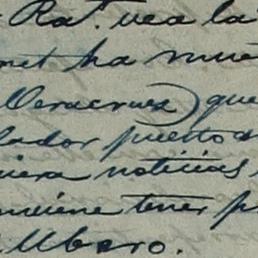 Rat. vea la
ha mue
Veracruz) que
lador puesto
iera noticias
nviene tener p
Ubero.